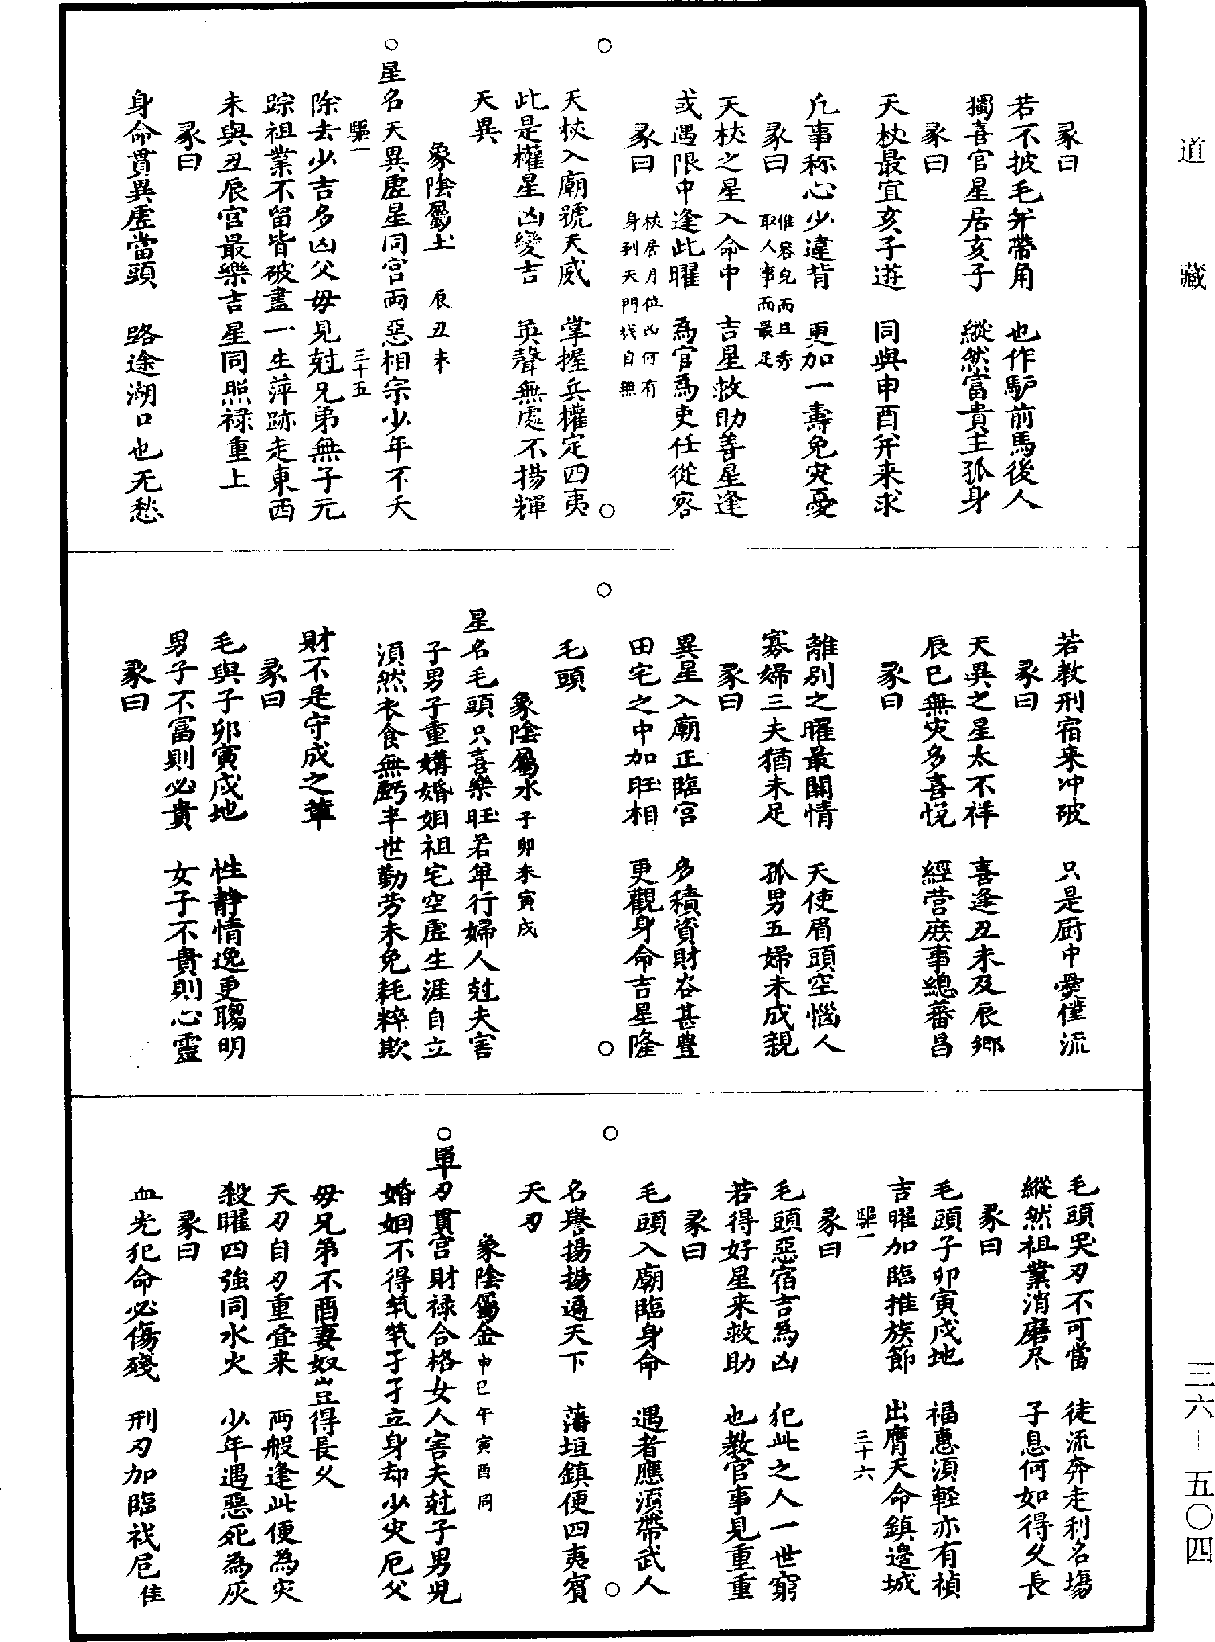 道藏
彖曰
若不披毛并帶角　也作馿前馬後人
獨喜官星居亥子　縱然富貴主孤身
彖曰
天杖最宜亥子遊　同與申酉并来求
凡事称心少違背　更加一壽免灾憂
彖曰　惟容皃而且秀　取人事而最足
天杖之星入命中　吉星救助善星逢
或遇限中逢此曜　為官為吏任從容
彖曰　杖居月位凶何有　身到天門伐自無
天杖入廟號天威　掌握兵權定四夷
此是權星凶變吉　英聲無處不揚輝
天異
象陰屬土　辰丑未
星名天異虛星同宫两惡相宗少年不夭
三十五
除去少吉多凶父母見尅兄弟無子元
踪祖業不留皆破盡一生萍跡走東西
未與丑辰官最樂吉星同照禄重上
彖曰
身命貫異虛當頭　路途湖口也无愁
若教刑宿来冲破　只是厨中㷱僕流
彖曰
天異之星太不祥　喜逢丑未及辰鄉
辰巳無灾多喜悦　經营庶事總蕃昌
彖曰
離别之曜最關情　天使眉頭空惱人
寡婦三夫猶未足　孤男五婦未成親
彖曰
異星入廟正臨宫　多積資財谷甚豊
田宅之中加旺相　更觀身命吉星隆
毛頭
象陰屬水　子卯未寅戌
星名毛頭只喜樂旺若单行婦人尅夫害
子男子重媾婚姻祖宅空虛生涯自立
湏然衣食無虧半世勤劳未免耗粹欺
財不是守成之輩
彖曰
毛與子卯寅戌地　性静情逸更聰明
男子不富則必貴　女子不貴則心靈
彖曰
毛頭哭刃不可當　徒流奔走利名塲
縱然祖業消磨尽　子息何如得久長
彖曰
毛頭子卯寅戌地　福惠湏軽亦有禎
吉曜加臨推族節　出膺天命鎮邉城
三十六
彖曰
毛頭惡宿吉為凶　犯此之人一世窮
若得好星来救助　也教官事見重重
彖曰
毛頭入廟臨身命　遇者應湏帶武人
名譽揚揚遍天下　藩垣鎮便四夷賓
天刃
象陰屬金　申巳午寅酉同
單刃貫宫財禄合格女人害夫尅子男児
婚姻不得茕茕孑孑立身却少灾厄父
母兄弟不酉妻奴豈得長久
天刃自刃重叠来　两般逢此便為灾
殺曜四強同水火　少年遇惡死為灰
彖曰
血光犯命必傷殘　刑刃加臨伐尼佳
三六—五〇四